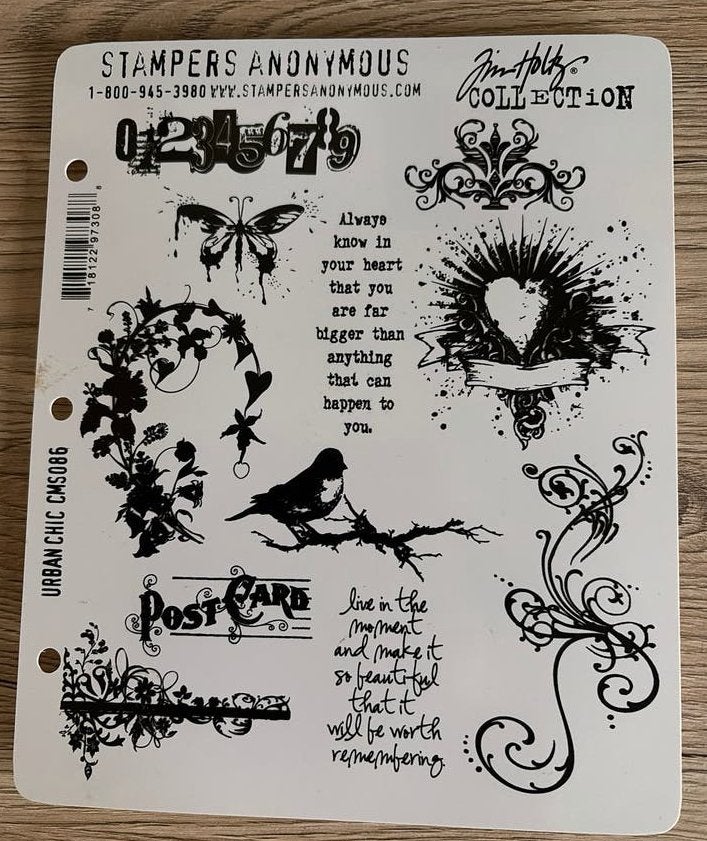 STAMPERS ANONYMOUS
1-800-945-3980 WWW.STAMPERSANONYMOUS.COM
Tim Holtz®
COLLECTION
0123456789
7 18122 97308 8
Always
know in
your heart
that you
are far
bigger than
anything
that can
happen to
you.
URBAN CHIC CMS086
POST CARD
live in the
moment
and make it
so beautiful
that it
will be worth
remembering.